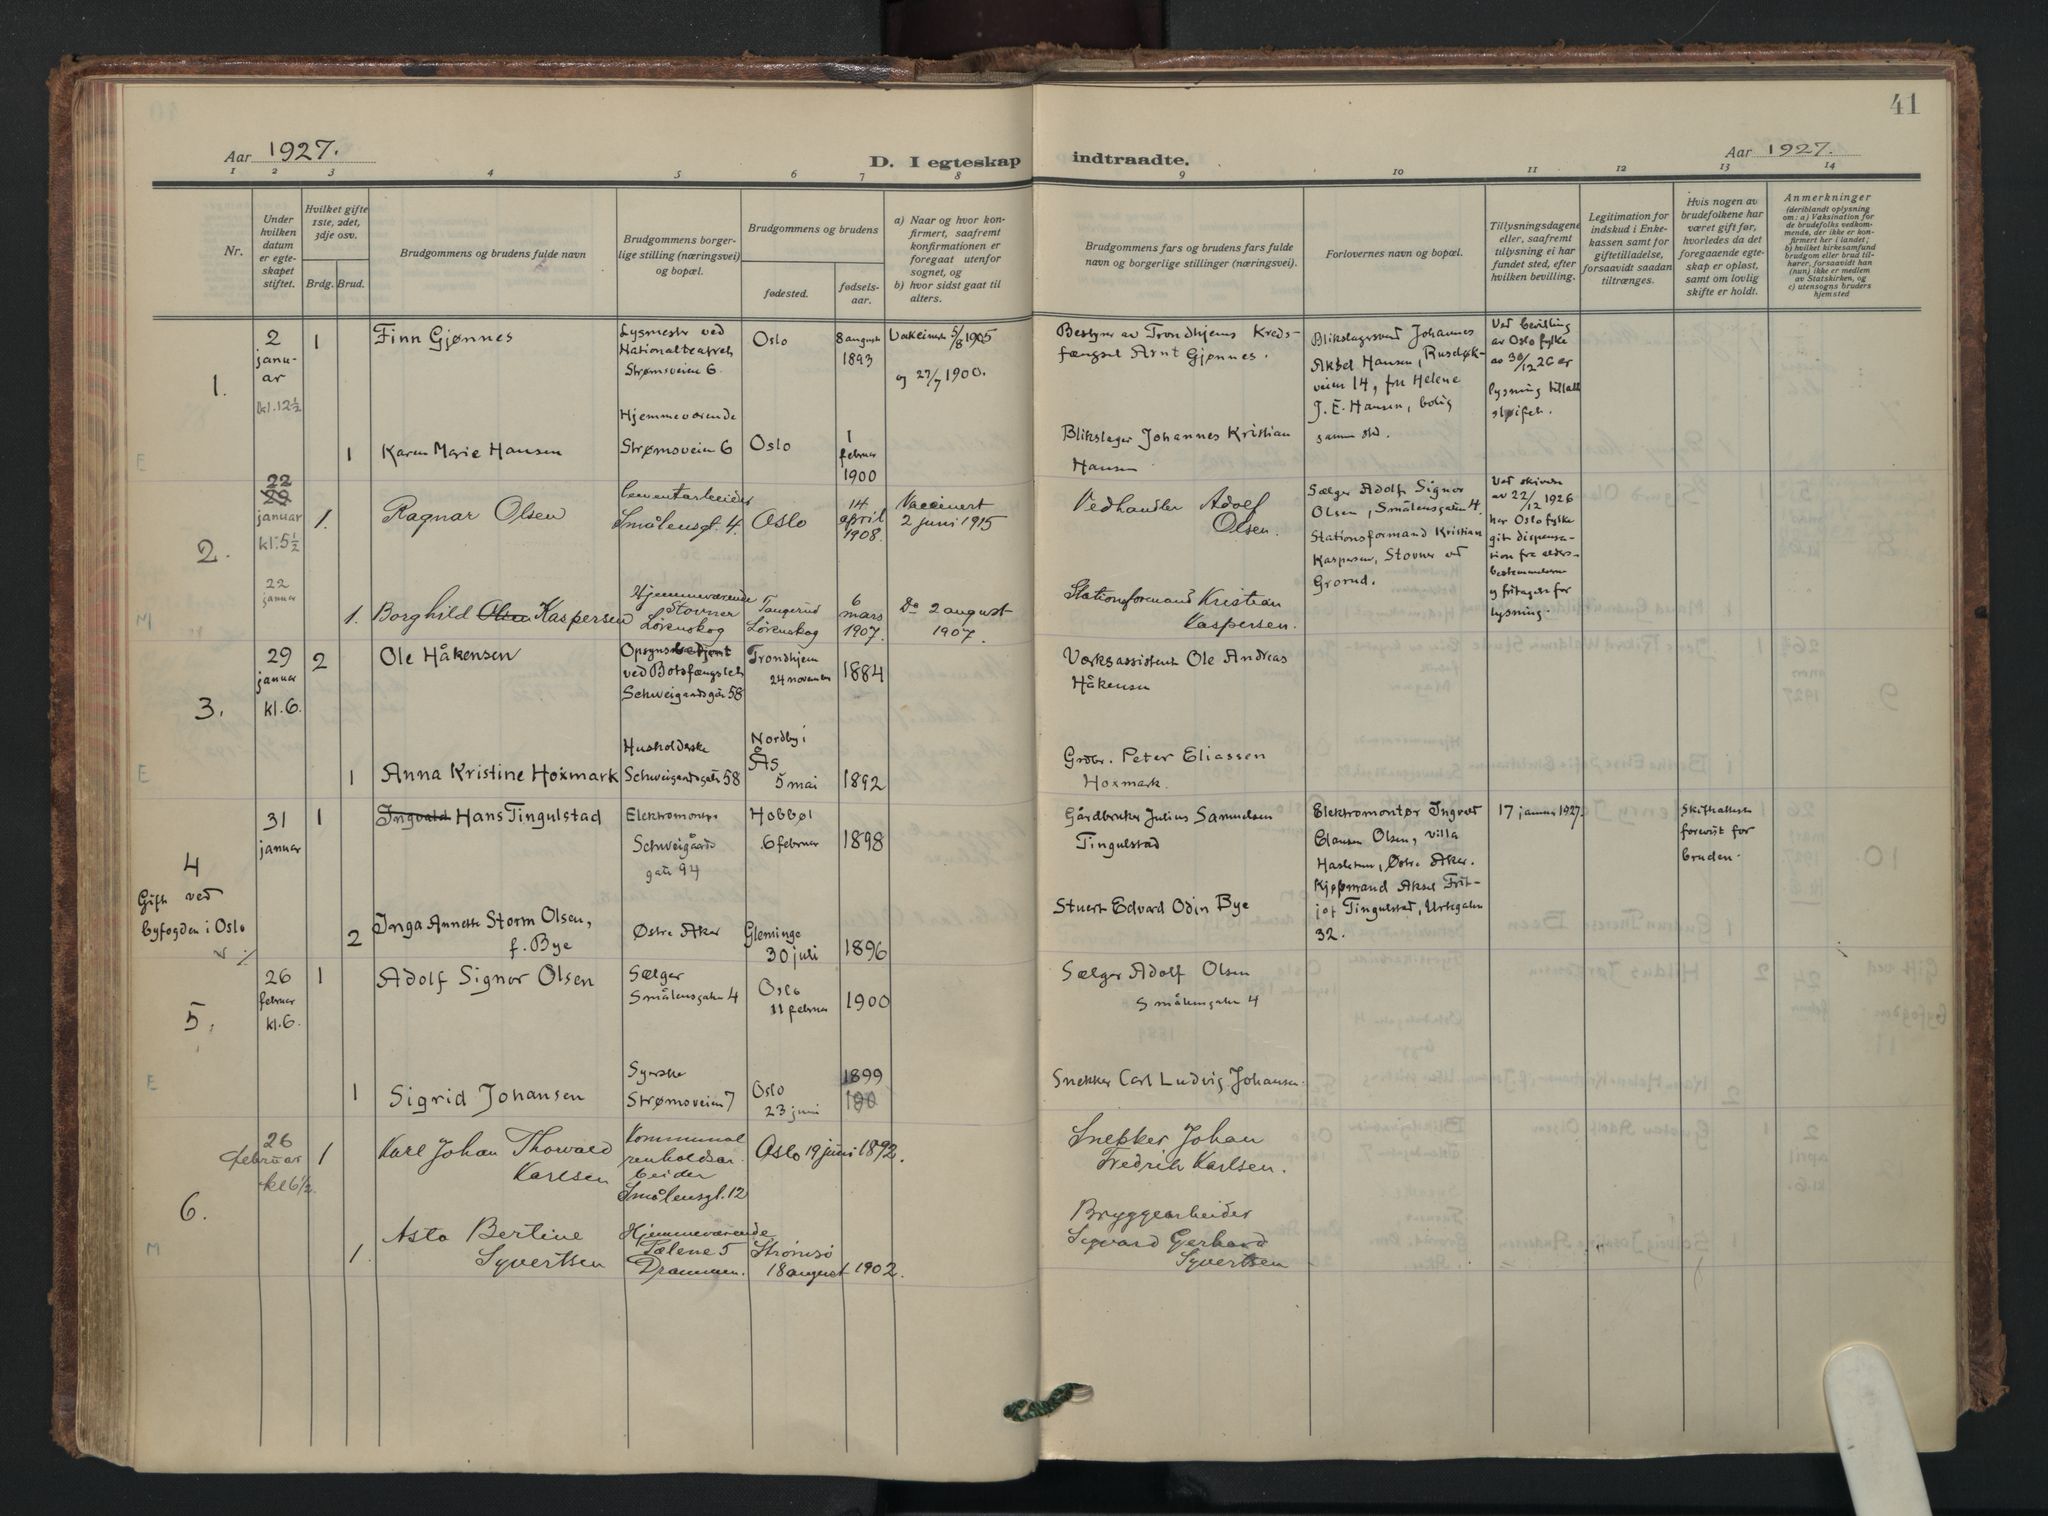 41
Aar 1927.
D. I egteskap indtraadte.
Aar 1927.
1 2 3 4 5 6 7 8 9 10 11 12 13 14
Nr.
Under
hvilken
datum
er egte-
skapet
stiftet.
Hvilket gifte
1ste, 2det,
3dje osv.
Brdg. Brud.
Brudgommens og brudens fulde navn
Brudgommens borger-
lige stilling (næringsvei)
og bopæl.
Brudgommens og brudens
fødested.
fødsels-
aar.
a) Naar og hvor kon-
firmert, saafremt
konfirmationen er
foregaat utenfor
sognet, og
b) hvor sidst gaat til
alters.
Brudgommens fars og brudens fars fulde
navn og borgerlige stillinger (næringsvei).
Forlovernes navn og bopæl.
Tillysningsdagene
eller, saafremt
tillysning ei har
fundet sted, efter
hvilken bevilling.
Legitimation for
indskud i Enke-
kassen samt for
giftetilladelse,
forsaavidt saadan
tiltrænges.
Hvis nogen av
brudefolkene har
været gift før,
hvorledes da det
foregaaende egte-
skap er opløst,
samt om lovlig
skifte er holdt.
Anmerkninger
(deriblandt oplysning
om: a) Vaksination for
de brudefolks vedkom-
mende, der ikke er kon-
firmert her i landet;
b) hvilket kirkesamfund
brudgom eller brud til-
hører, forsaavidt han
(hun) ikke er medlem
av Statskirken, og
c) utensogns bruders
hjemsted
1.
2
janu-
ar
kl. 12½
1
Finn Gjønnes
Lysmester ved
Nationalteatret
Strømsveien 6.
Oslo
8 august
1893
5/8 1905
og 27/7 1900.
Bestyrer av Trondhjems Kreds-
fængsel Arnt Gjønnes.
Blikslagersvend Johannes
Aksel Hansen, Ruseløk-
veien 14, fru Helene
J. E. Hansen, bolig
samme sted.
Ved bevilling
av Oslo fylke
av 30/12 26 er
lysning tillatt
sløifet.
E
1
Karen Marie Hansen
Hjemmeværende
Strømsveien 6
Oslo
1
februar
1900
Blikslager Johannes Kristian
Hansen
2.
22
januar
kl. 5½
1.
Ragnar Olsen
Cementarbeider
Smålensgt. 4.
Oslo
14
april
1908.
Vaccinert
2 juni 1915
Vedhandler Adolf
Olsen.
Sælger Adolf Signor
Olsen, Smålensgaten 4.
Stationsformand Kristian
Kaspersen, Stovner ved
Grorud.
Ved skrivelse
av 22/12 1926
har Oslo fylke
git dispensa-
tion fra alders-
bestemmelserne
og fritagelse for
lysning.
22
januar
M
1.
Borghild Olsen Kaspersen
Hjemmeværende
Stovner
Lørenskog
Tangerud
Lørenskog
6
mars
1907.
Do 2 august
1907.
Stationsformand Kristian
Kaspersen.
3.
29
januar
kl. 6.
2
Ole Håkensen
Opsynsbetjent
ved Botsfængslet
Schweigaardsgate 58
Trondhjem
24 november
1884
Værksassistent Ole Andreas
Håkensen
E
1
Anna Kristine Hoxmark
Husholderske
Schweigaardsgate 58
Nordby i
Ås
5 mai
1892
Grdbr. Peter Eliassen
Hoxmark.
4
Gift ved
byfogden i Oslo
31
januar
1
Ingvald Hans Tingulstad
Elektromontør
Schweigaards
gate 94
Hobbøl
6 februar
1898
Gårdbruker Julius Samuelsen
Tingulstad
Elektromontør Ingvald
Clausen Olsen, villa
Hasletun, Østre Aker.
Kjøpmand Aksel Frit-
jof Tingulstad, Urtegaten
32.
17 januar 1927.
Skifteattest
forevist for
bruden.
2
Inga Annette Storm Olsen,
f. Bye
Østre Aker
Gleminge
30 juli
1896
Stuert Edvard Odin Bye
5.
26
februar
kl. 6.
1
Adolf Signor Olsen
Sælger
Smålensgaten 4
Oslo
11 februar
1900
Sælger Adolf Olsen
Smålensgaten 4
E
1
Sigrid Johansen
Syerske
Strømsveien 7
Oslo
23 juni
1899
190
Snekker Carl Ludvig Johansen.
6.
26
februar
kl 6½.
1
Karl Johan Thorvald
Karlsen
Kommunal
renholdsar-
beider
Smålensgt. 12
Oslo 19 juni 1892.
Snekker Johan
Fredrik Karlsen.
M
1.
Asta Bertine
Syvertsen
Hjemmeværende
Tælene 5
Drammen.
Strømsø
18 august 1902.
Bryggearbeider
Sigvard Gerhard
Syvertsen